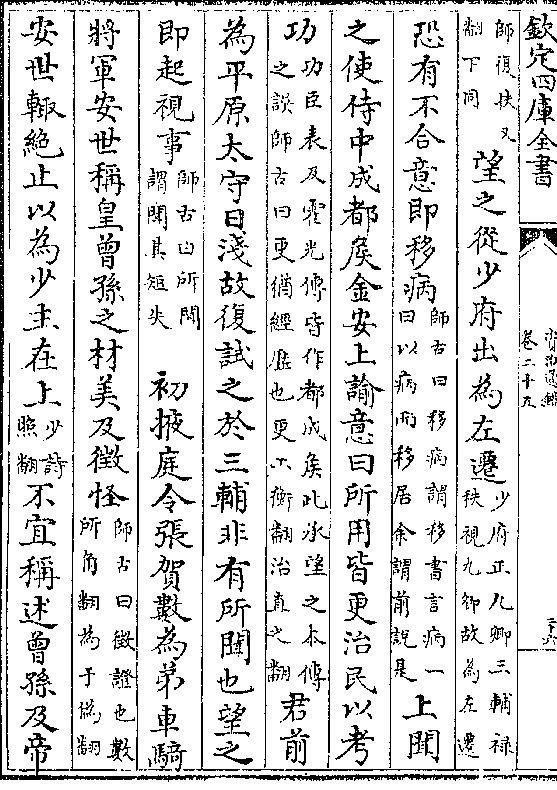 欽定四庫全書
資治通鑑
卷二十五
二十六
師復扶又翻下同望之從少府出為左遷少府正九卿三輔禄秩視九卿故為左遷
恐有不合意即移病師古曰移病謂移書言病一曰以病而移居余謂前説是上聞
之使侍中成都侯金安上諭意曰所用皆更治民以考
功功臣表及霍光傳皆作都成侯此承望之本傳之誤師古曰更猶經歷也更工衡翻治直之翻君前
為平原太守日淺故復試之於三輔非有所聞也望之
即起視事師古曰所聞謂聞其短失初掖庭令張賀數為弟車騎
將軍安世稱皇曾孫之材美及徵怪師古曰徵證也數所角翻為于偽翻
安世輒絶止以為少主在上少詩照翻不宜稱述曾孫及帝